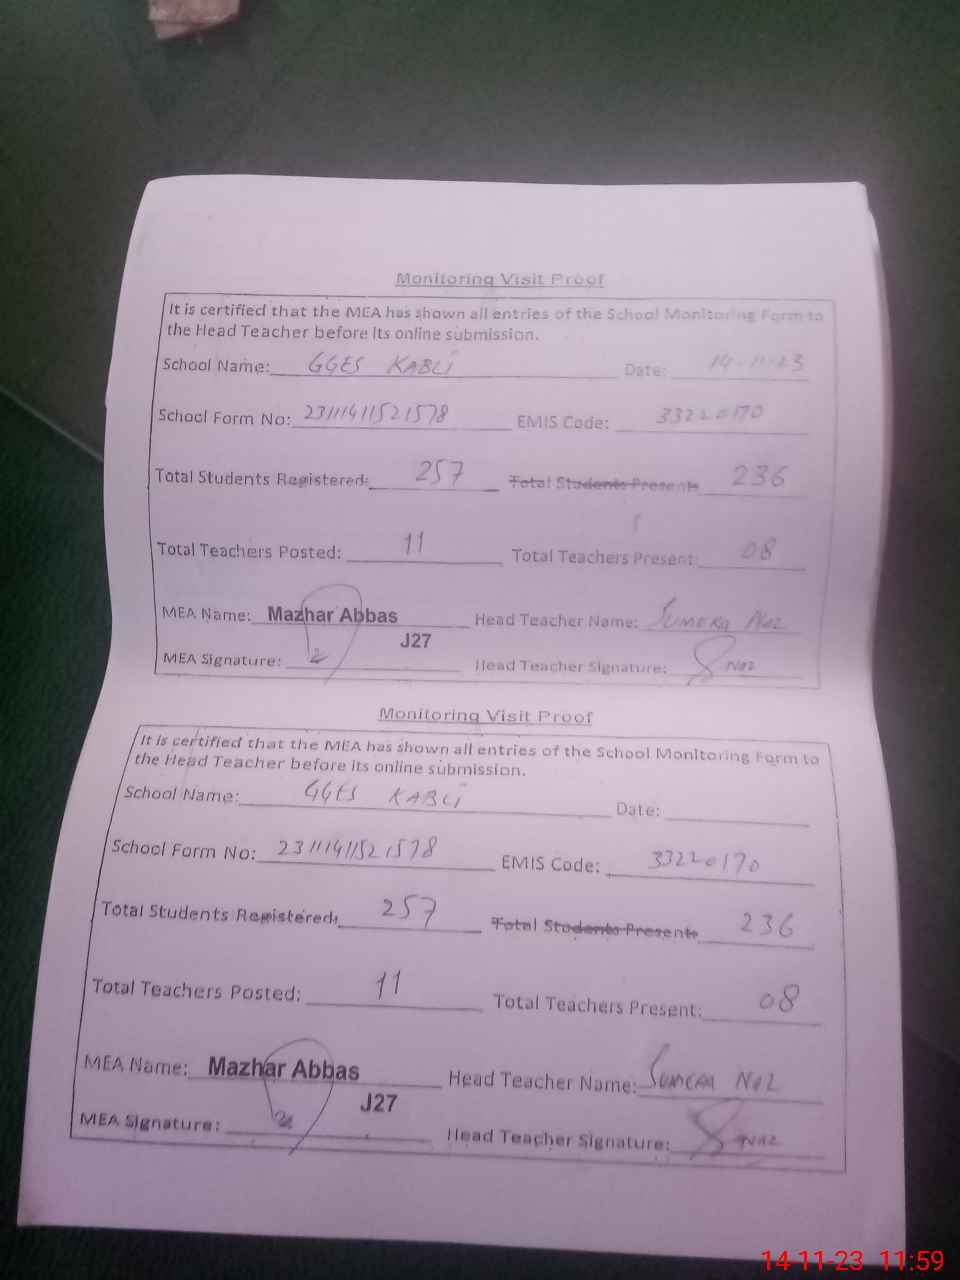 Monitoring Visit Proof
It is certified that the MEA has shown all entries of the School Monitoring Form to
the Head Teacher before its online submission.
School Name: GGES KABLI Date: 14-11-23
School Form No: 23111411521578 EMIS Code: 33220170
Total Students Registered: 257 Total Students Present: 236
Total Teachers Posted: 11 Total Teachers Present: 08
MEA Name: Mazhar Abbas Head Teacher Name: SUMERA Naz
J27
MEA Signature: Head Teacher Signature: Naz
Monitoring Visit Proof
It is certified that the MEA has shown all entries of the School Monitoring Form to
the Head Teacher before its online submission.
School Name: GGES KABLI Date:
School Form No: 23111411521578 EMIS Code: 33220170
Total Students Registered: 257 Total Students Present: 236
Total Teachers Posted: 11 Total Teachers Present: 08
MEA Name: Mazhar Abbas Head Teacher Name: SUMERA Naz
J27
MEA Signature: Head Teacher Signature: Naz
14-11-23 11:59